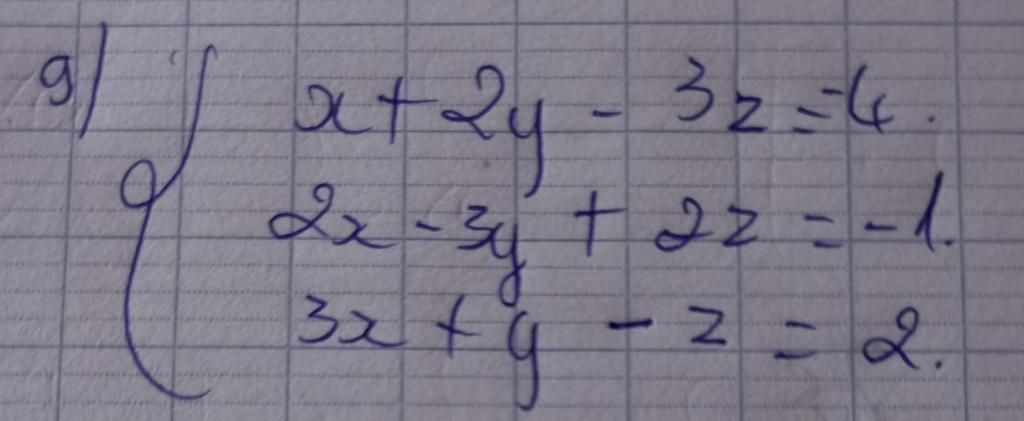 9) x + 2y - 3z = -4.
2x - 3y + 2z = -1.
3x + y - z = 2.